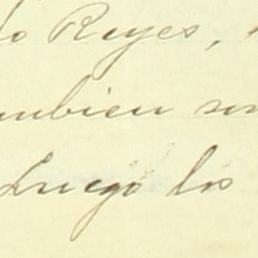 do Reyes,
ambien son
Luego los